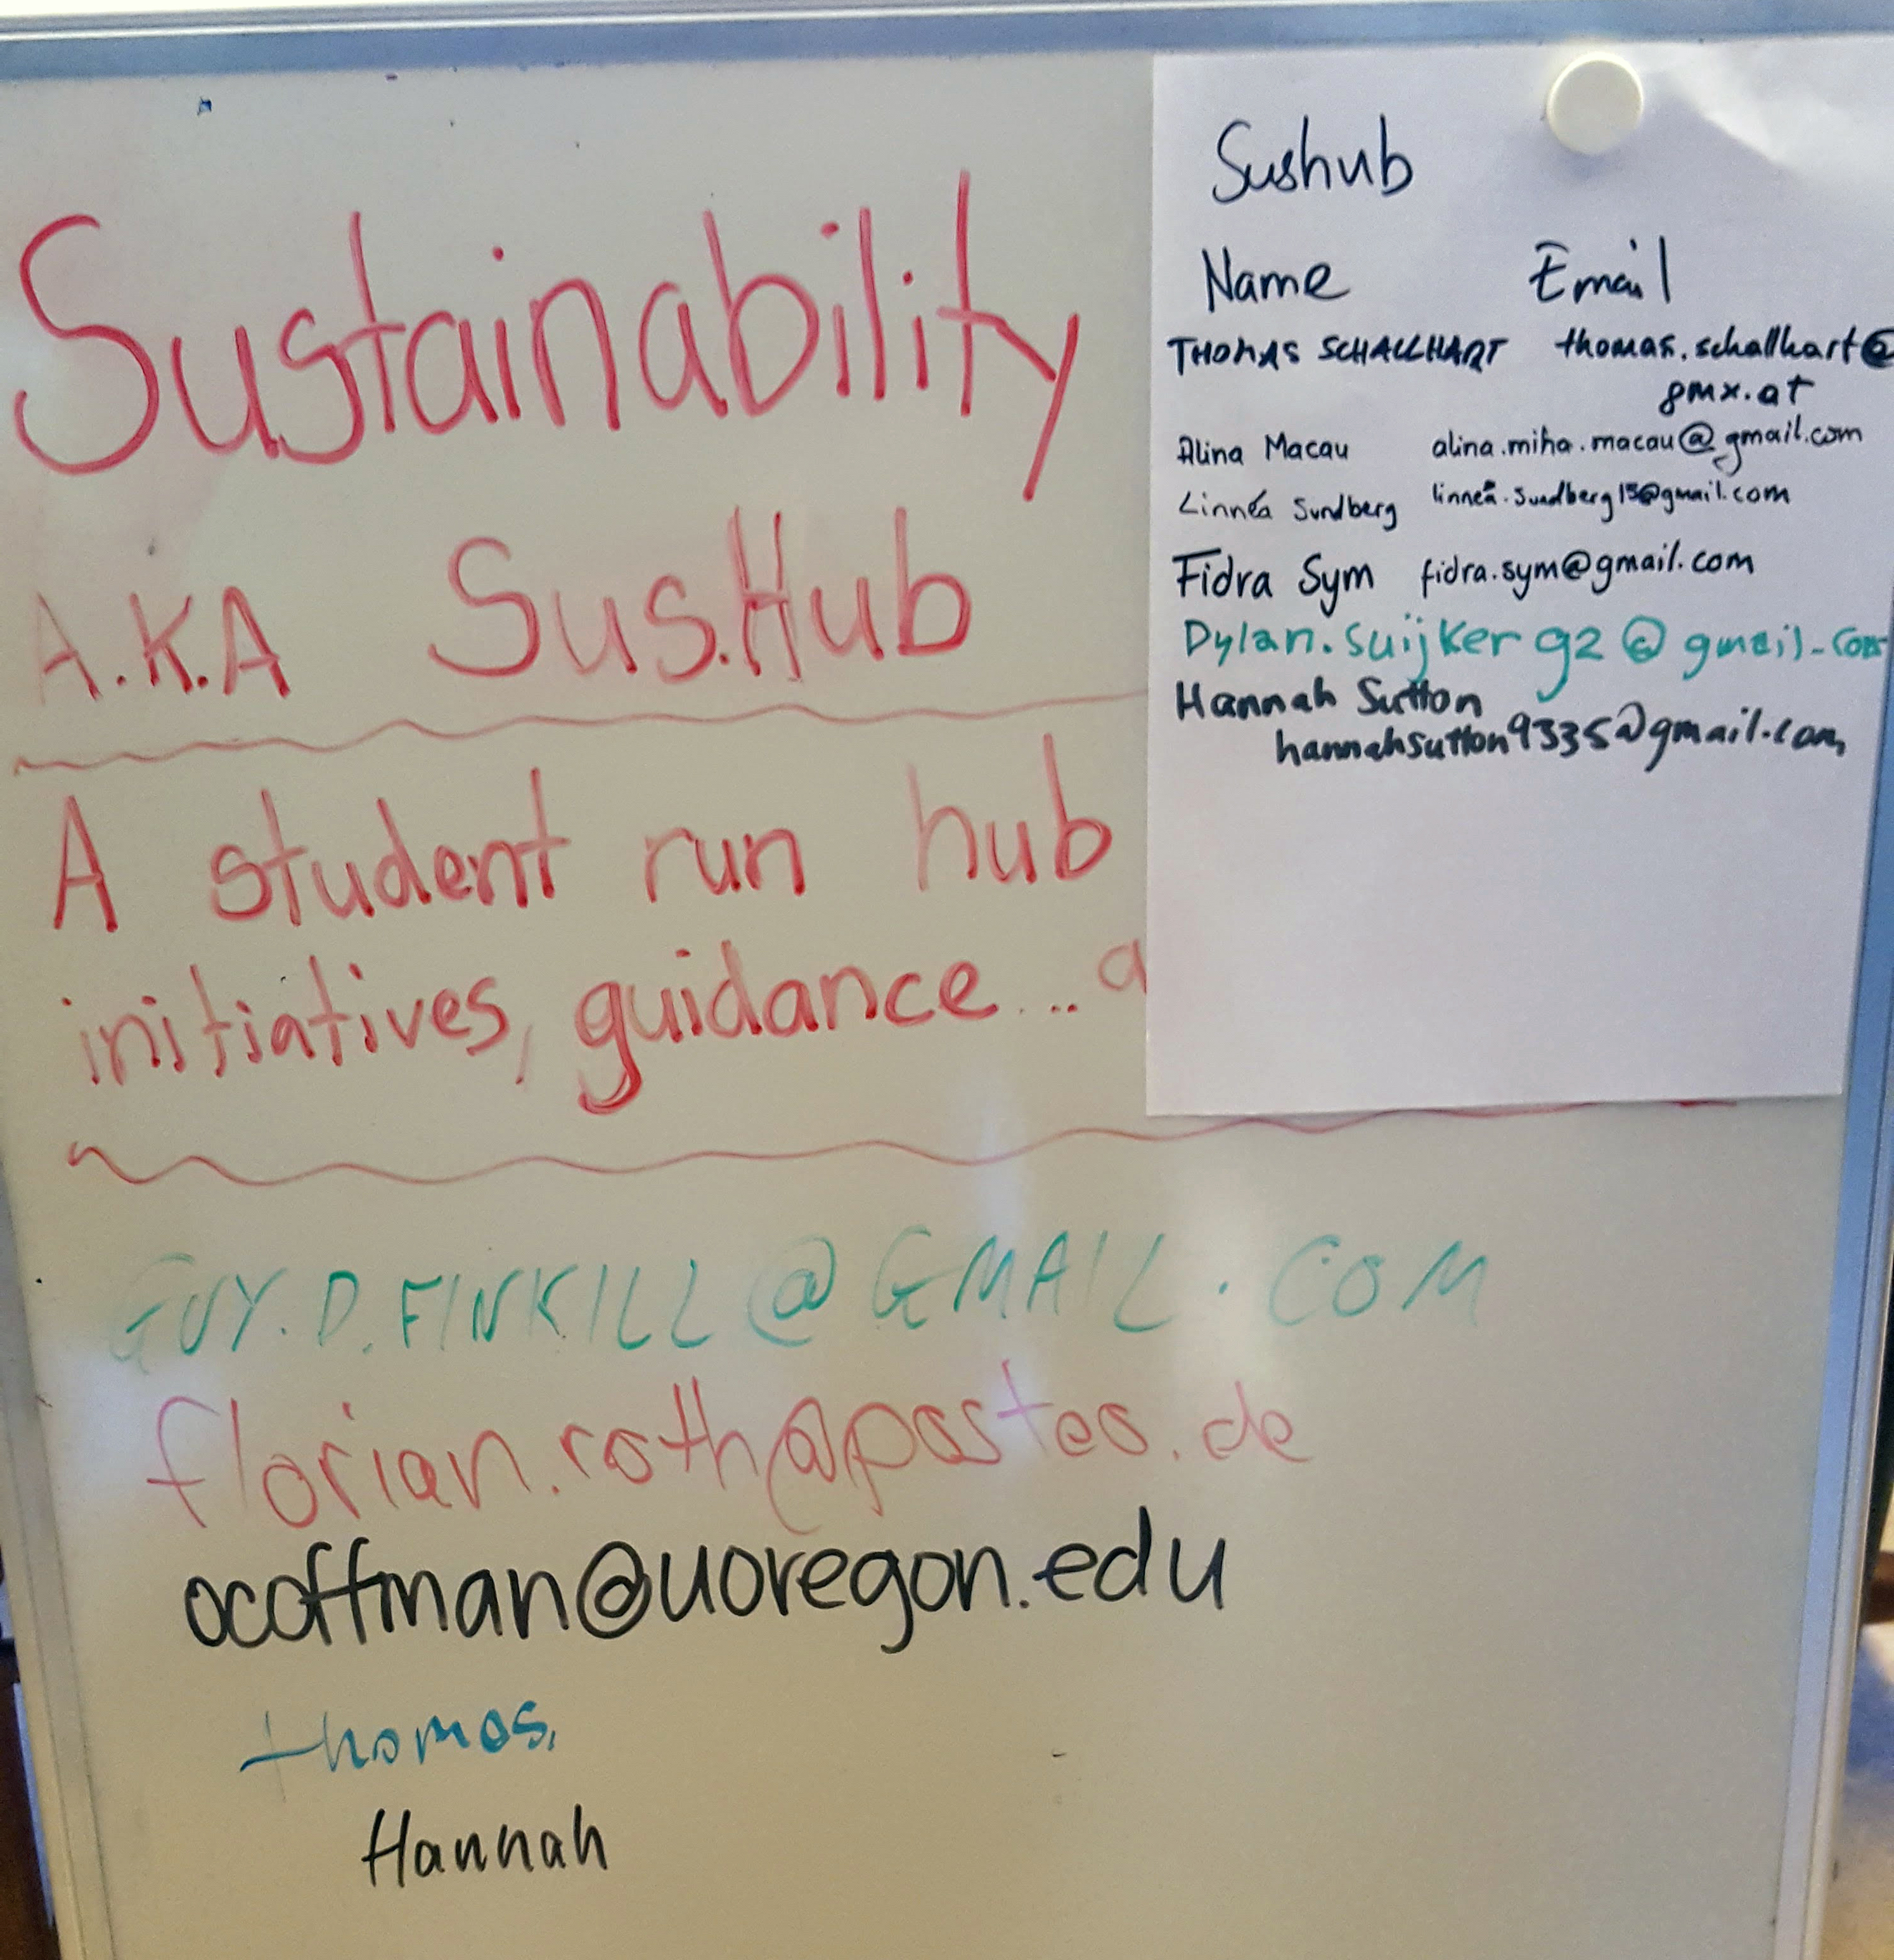 Sustainability
A.K.A SusHub
A student run hub
initiatives, guidance... a
GUY.D.FINKILL@GMAIL.COM
florian.roth@posteo.de
ocoffman@uoregon.edu
thomas.
Hannah
Sushub
Name Email
THOMAS SCHALLHART thomas.schallhart@
gmx.at
Alina Macau alina.miha.macau@gmail.com
Linnéa Sundberg linnea.sundberg15@gmail.com
Fidra Sym fidra.sym@gmail.com
Dylan.Suijker92@gmail.com
Hannah Sutton
hannahsutton9335@gmail.com